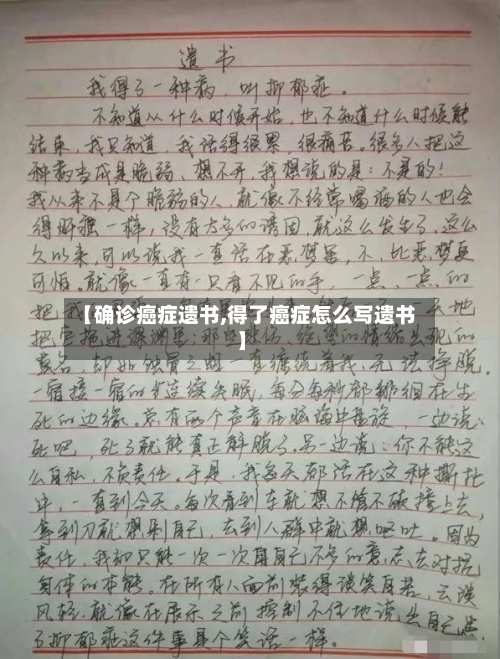 遗书
我得了一种病，叫抑郁症。
不知道从什么时候开始，也不知道什么时候能
结束，我只知道，我活得很累，很痛苦。很多人把这
种病当成是脆弱，想不开，我想说的是：不是的！
我从来不是个脆弱的人，就像不经常喝酒的人也会
得肝癌一样，没有太多的诱因，就这么发生了。这么
久以来，可以说我一直活在恶梦里，不，比恶梦更
可怕。就像一直有一只看不见的手，一点一点的
把我
【确诊癌症遗书,得了癌症怎么写遗书
】
把它拖进深渊里：那些悲伤、绝望的情绪出现的
莫名，却如蛆一直缠绕着我，无法挣脱。
一宿接一宿的连续失眠，每分每秒都徘徊在生
死的边缘。总有两个声音在脑海中盘旋，一边说：
死吧，死了就能真正解脱了，另一边说：你不能这
么自私，不负责任。于是，我每天都活在这种撕扯
中，一直到今天。每次看到车就想不惜不顾撞上去，
拿到刀就想割自己，去到人群中就想呕吐。因为
责任，我却只能一次一次用自己不多的意志去对抗
身体的本能。在所有人面前装得谈笑自若，云淡
风轻，就像在展示之前控制不住地说出自己患
了抑郁症这件事是个笑话一样。